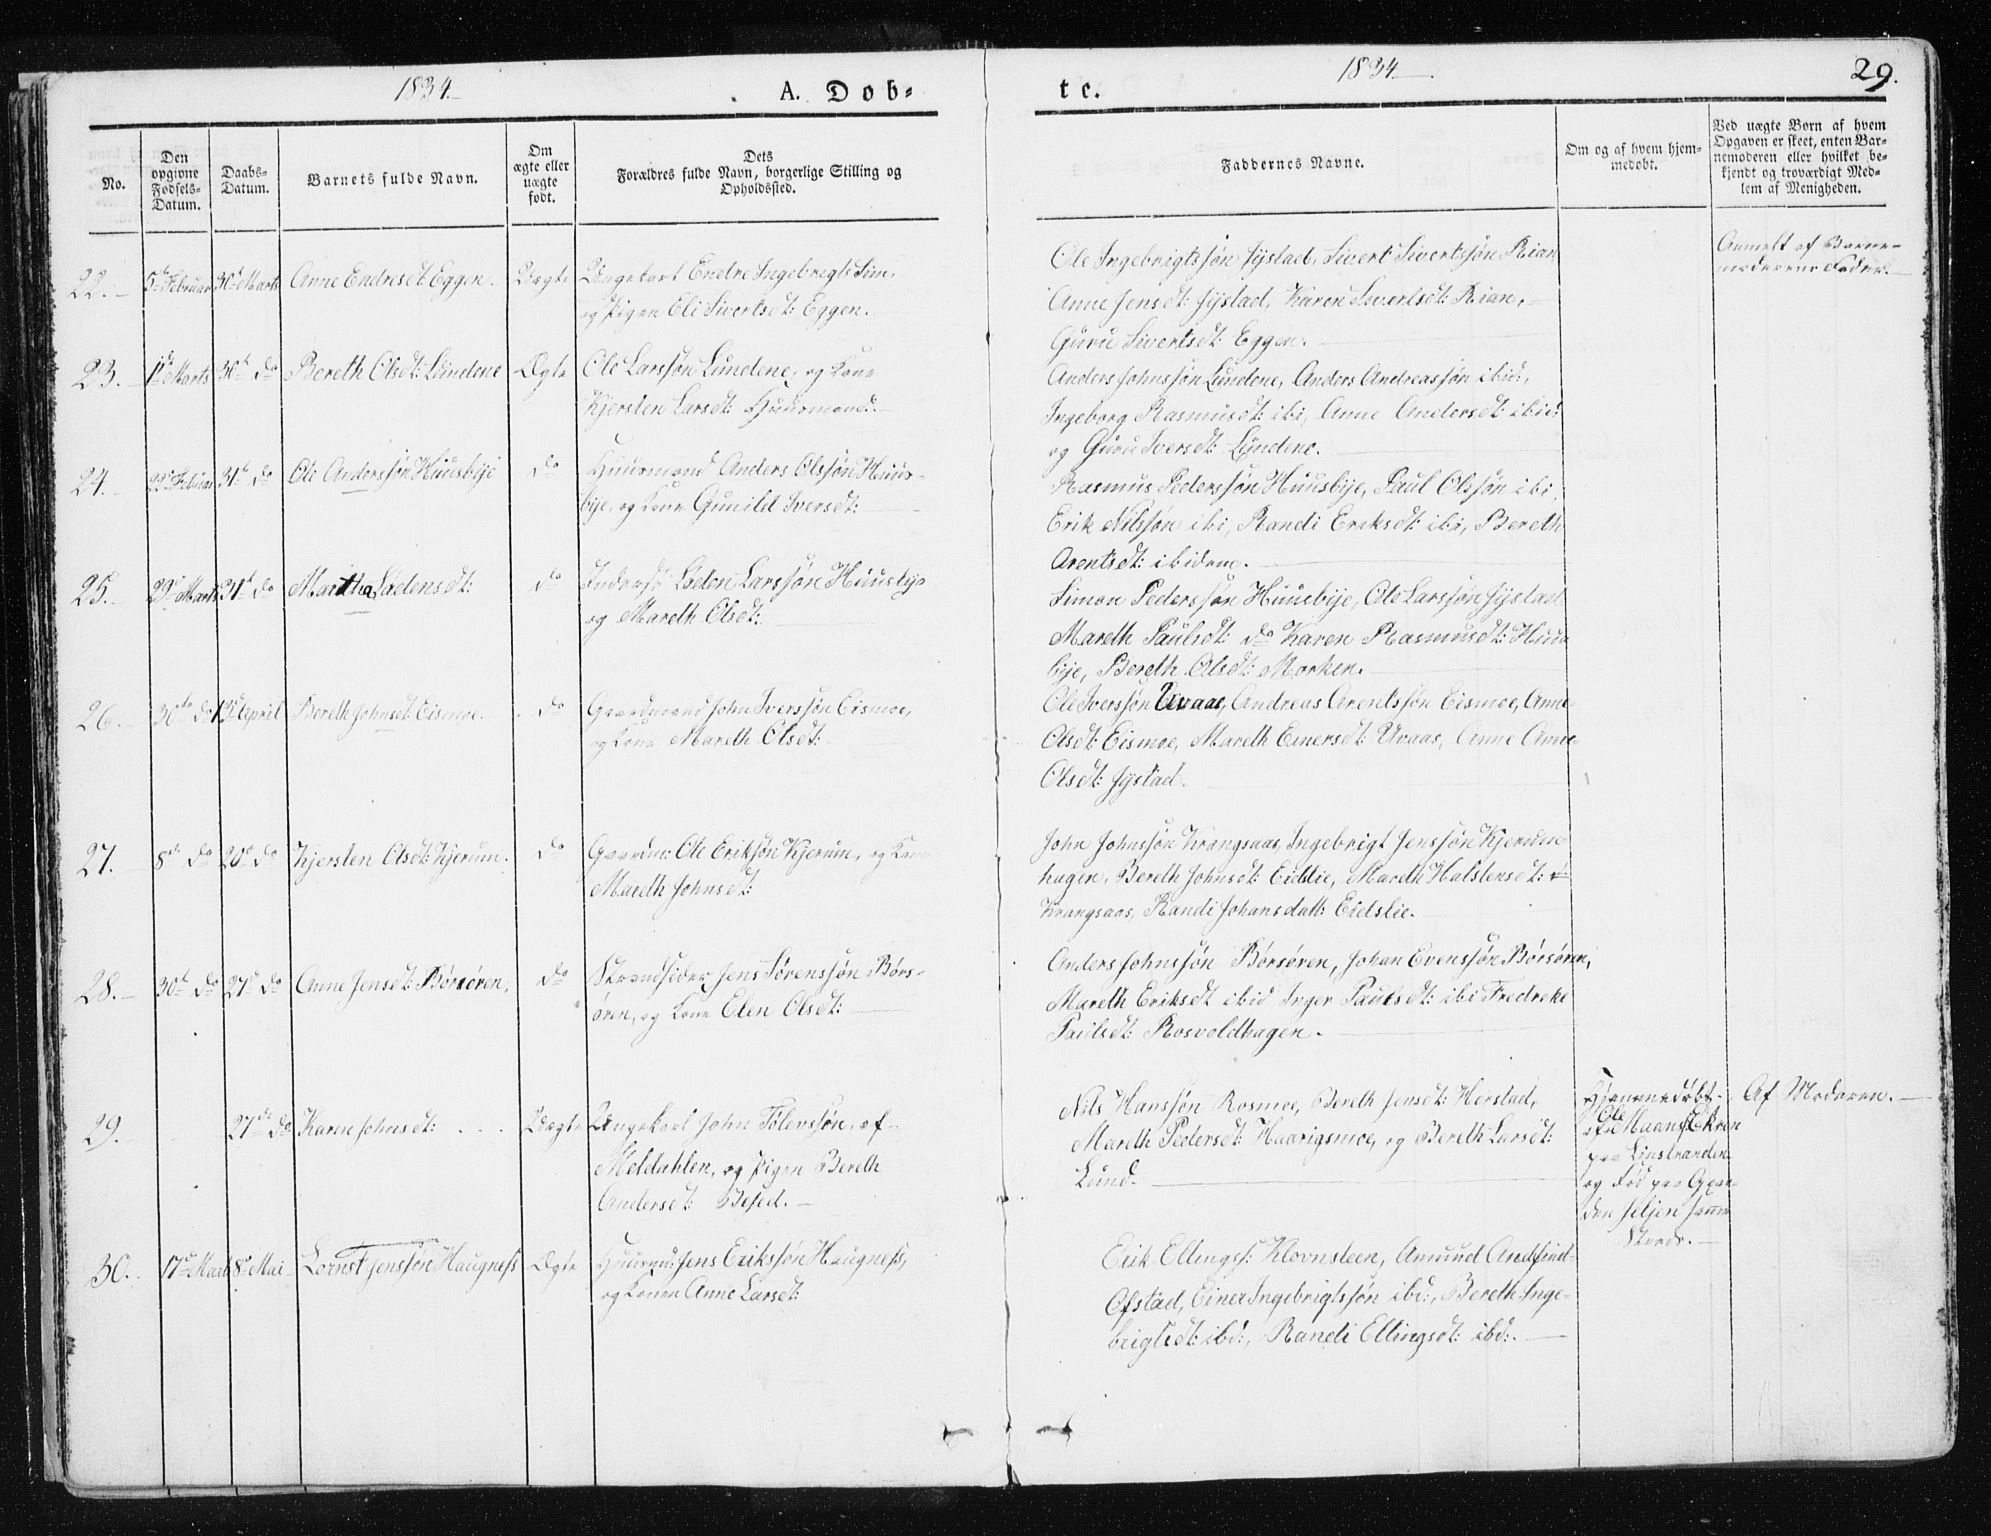 1834.
A. Dob-
te.
1834.
29.
No.
Den opgivne Fødsels-Datum.
Daabs-Datum.
Barnets fulde Navn.
Om ægte eller uægte født.
Dets Forældres fulde Navn, borgerlige Stilling og Opholdssted.
Faddernes Navne.
Om og af hvem hjemmedøbt.
Ved uægte Born af hvem Opgaven er skeet, enten Barnemoderen eller hvilket bekjendt og troværdigt Medlem af Menigheden.
22. 5te Februar 30te Marts Anne Endresdt: Eggen. Uægte Ungekarl Endre Ingebrigts
og Pigen Eli Sivertsdt: Eggen.
Ole Ingebrigtsøn Systad, Sivert Sivertsøn Rian
Anne Jensdt: Systad, Karen Sivertsdt: Rian,
Guru Sivertsdt: Eggen.
Anmelt af Barne-
moderens Fader.
23. 1te Marts 30te do Bereth Olsdt: Lundene Ægte Ole Larssøn Lundene, og Kone
Kjersten Larsdt: Huusmand.
Anders Johnsøn Lundene, Anders Andreassøn ibid:,
Ingeborg Rasmusdt: ibi, Anne Andersdt: ibid:
og Guru Iversdt: Lundene.
24. 22de Februar 31te do Ole Anderssøn Huusbye do Huusmand Anders Olssøn Huus-
bye, og Kone Gunild Iversdt:
Rasmus Pederssøn Huusbye, Paul Olssøn ibi,
Erik Nilssøn ibi, Randi Eriksdt: ibi, Bereth
Arentsdt: ibidem.
25. 29de Marts 31te do Martha Lodensdt: do Inderst Loden Larssøn Huusbye
og Mareth Olsdt:
Simon Pederssøn Huusbye, Ole Larssøn Systad
Mareth Paulsdt: do Karen Rasmusdt: Huus
bye, Bereth Olsdt: Morken.
26. 30te do 13de April Bereth Johnsdt: Eismoe. do Gaardmand John Iverssøn Eismoe,
og Kone Mareth Olsdt:
Ole Iverssøn Uvaas, Andreas Arentssøn Eismoe, Anne
Olsdt: Eismoe, Mareth Einersdt: Uvaas, Anne Anne
Olsdt: Systad.
27. 8de do 20de do Kjersten Olsdt: Kjerum. do Gaardm: Ole Eriksøn Kjerum, og Kone
Mareth Johnsdt:
John Johnssøn Krangsaas, Ingebrigt Jenssøn Kjerum
hagen, Bereth Johnsdt: Eidslie, Mareth Halstensdt:
Krangsaas, Randi Johansdatt: Eidslie.
28. 30te do 27de do Anne Jensdt: Børsøren, do Strandsider Jens Sørenssøn Børs-
øren, og Kone Elen Olsdt:
Anders Johnssøn Børsøren, Johan Evenssøn Børsøren,
Mareth Eriksdt ibid Inger Paulsdt: ibi Fredreke
Paulsdt: Rosvoldhagen.
29. 27de do Karen Johnsdt: Uægte Ungekarl John Tølerssøn, af
Meldahlen, og Pigen Bereth
Andersdt:
Nils Hanssøn Rosmoe, Bereth Jensdt: Herstad,
Mareth Pedersdt: Haarigsmoe, og Bereth Larsdt:
Lund.
Hjemmedøbt
Ole
paa Linstranden
og Fød paa
Steds.
Af Moderen.
30. 17de Marts 8de Mai Lornst Jenssøn Haugness Ægte Huusmd: Jens Eriksøn Haugness,
og Konen Anne Larsdt:
Erik Ellings: Klovnsteen, Amund
Ofstad, Einer Ingebrigtssøn ibd:, Bereth Inge-
brigtsdt: ibd:, Randi Ellingsdt: ibd:.